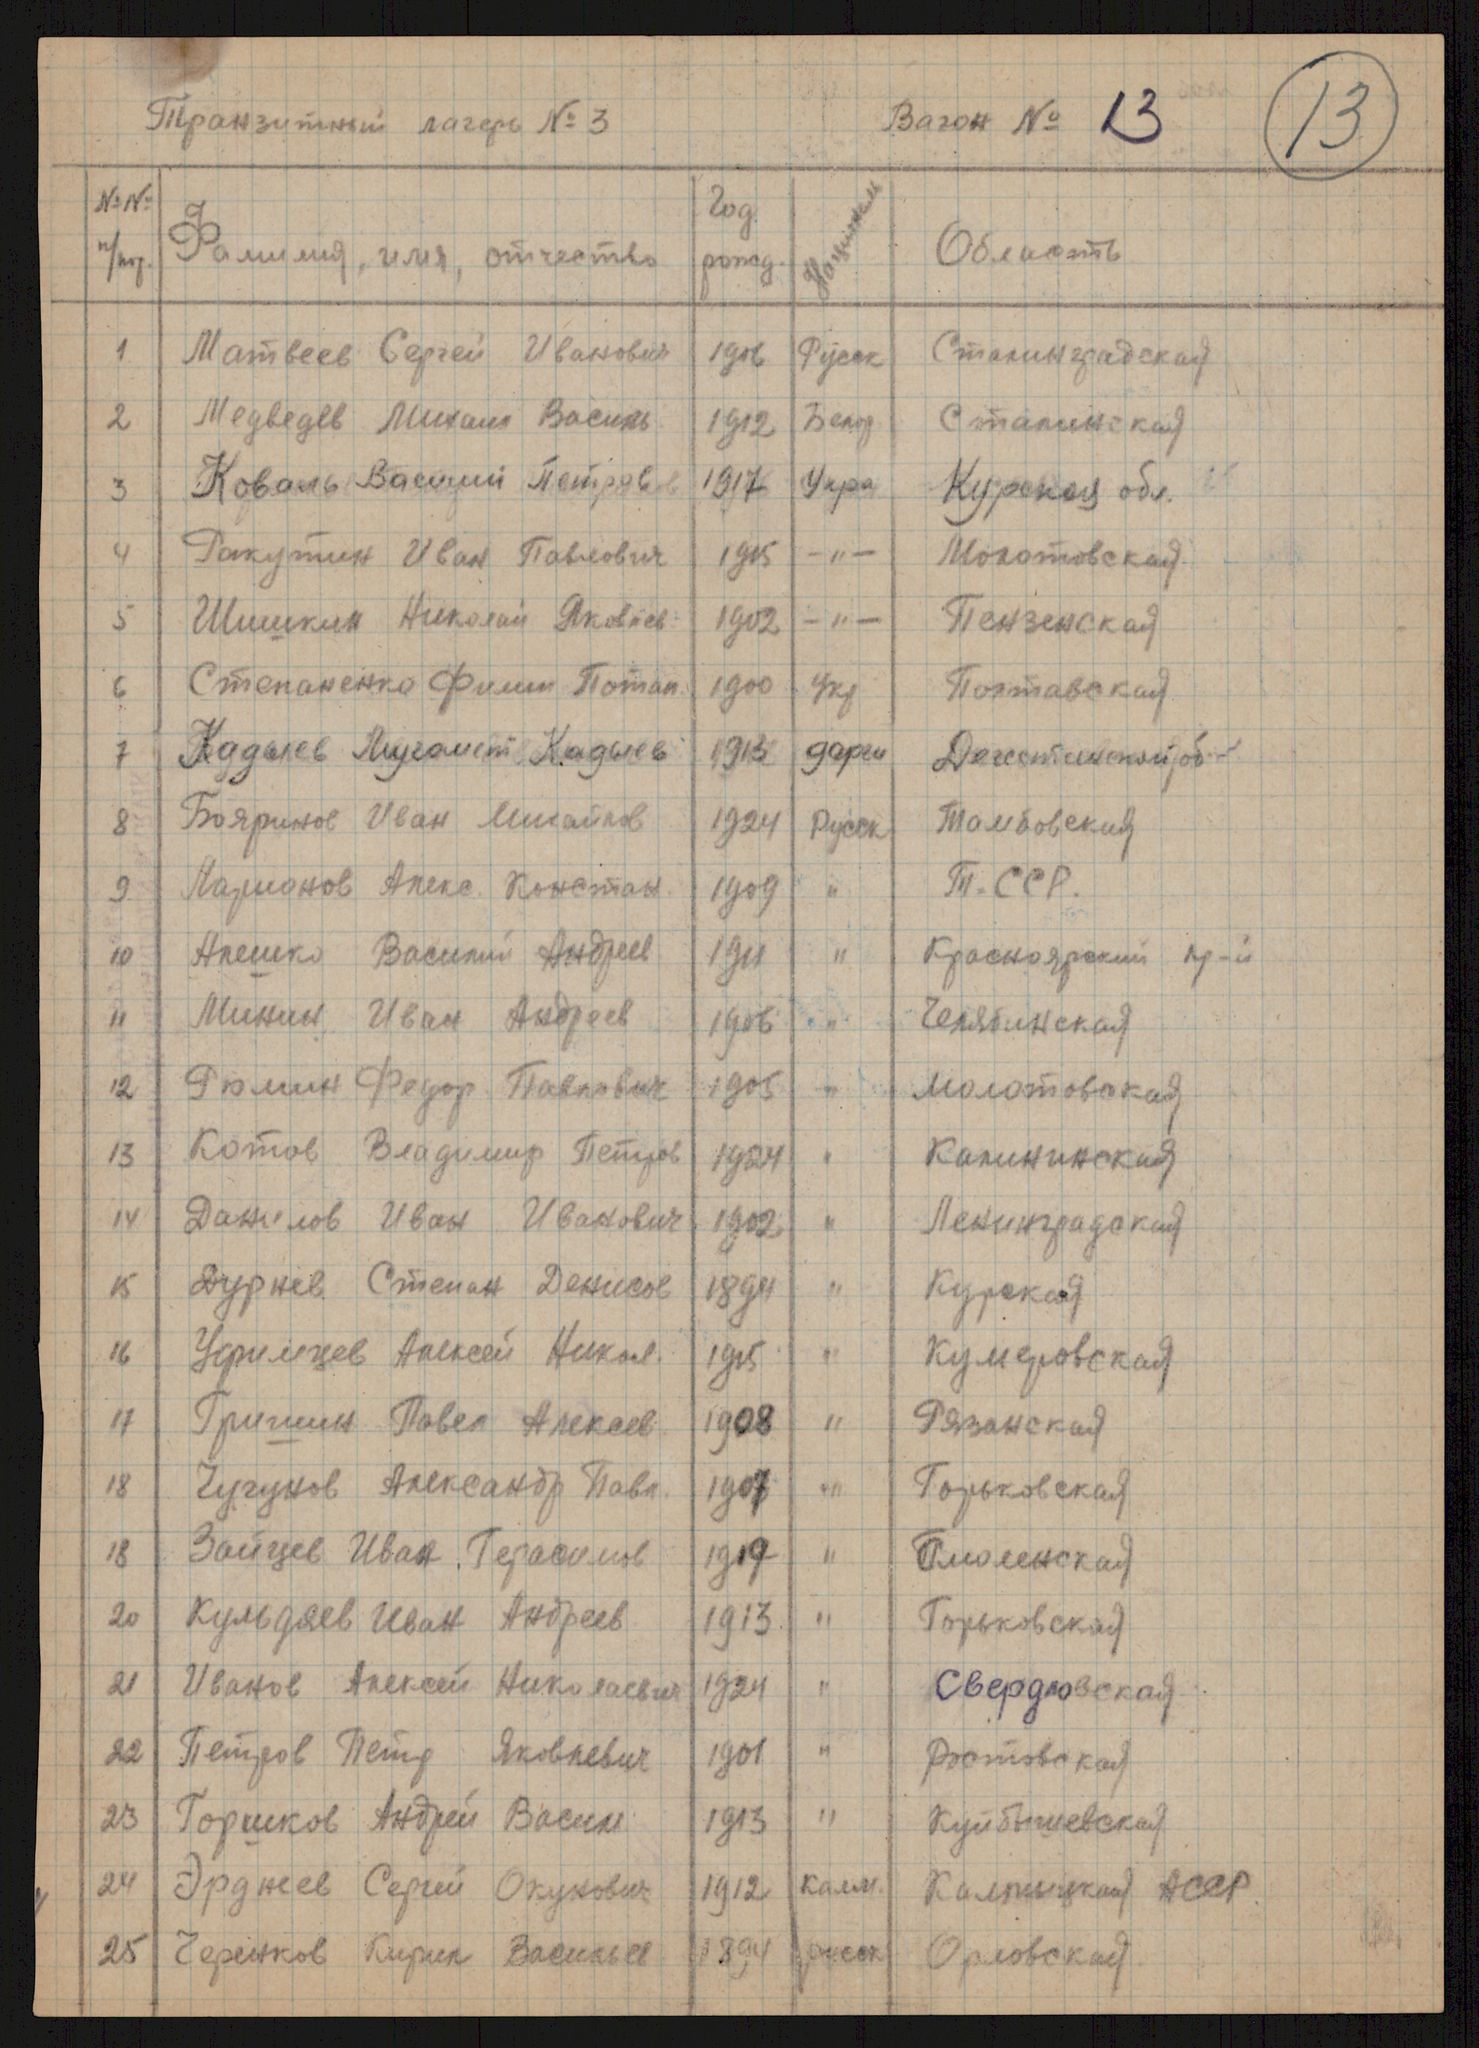 Транзитный лагерь № 3 Вагон № 13 13
№№ п/пор. Фамилия, имя, отчество Год рожд. Национальн Область
1 Матвеев Сергей Иванович 1906 Русск Сталинградская
2 Медведев Михаил Василь 1912 Белор Сталинская
3 Коваль Василий Петров 1917 Укра Курская обл.
4 Ракутин Иван Павлович 1915 -"- Молотовская
5 Шишкин Николай Яковлев 1902 -"- Пензенская
6 Степаненко Филип Потап. 1900 Укр Полтавская
7 Кадыев Мугамет Кадыев 1913 дарги
8 Бояринов Иван Михайлов 1924 Русск Тамбовская
9 Ларионов Алекс. Констан. 1909 " Т. ССР.
10 Алешко Василий Андреев 1911 " Красноярский кр-й
11 Минин Иван Андреев 1906 " Челябинская
12 Рюмин Федор Павлович 1905 " Молотовская
13 Котов Владимир Петров 1924 " Калининская
14 Данилов Иван Иванович 1902 " Ленинградская
15 Дурнев Степан Денисов 1894 " Курская
16 Алексей Никол. 1915 " Кумеровская
17 Гришин Павел Алексеев 1908 " Рязанская
18 Чугунов Александр Павл. 1907 " Горьковская
18 Зайцев Иван Герасимов 1919 " Смоленская
20 Кульдяев Иван Андреев 1913 " Горьковская
21 Иванов Алексей Николаевич 1924 " Свердловская
22 Петров Петр Яковлевич 1901 " Ростовская
23 Горшков Андрей Васил 1913 " Куйбышевская
24 Эрджеев Сергей Окунович 1912 калм. Калмыцкая АССР.
25 Черенков Кирил Васильев 1894 русск Орловская